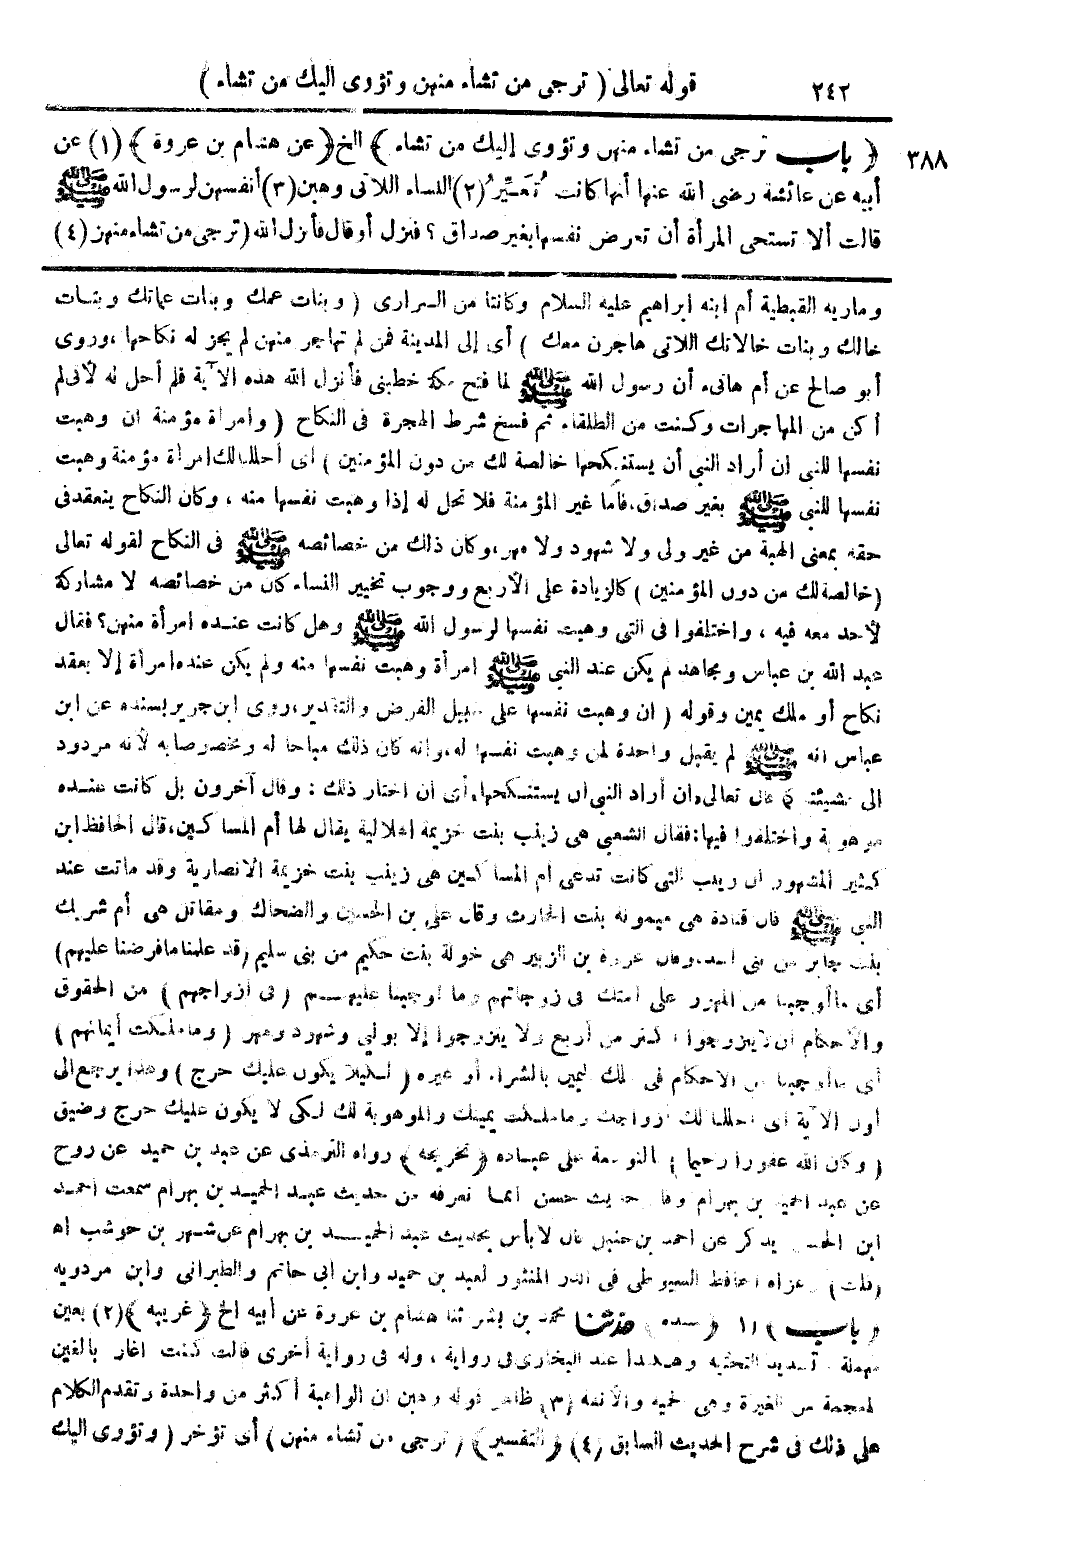 ٢٤٢ قوله تعالى ( ترجى من تشاء منهن وتؤوى اليك من تشاء )
٣٨٨ ﴿ باب ترجى من تشاء منهن وتؤوى إليك من تشاء ﴾ الخ ﴿ عن هشام بن عروة ﴾ (١) عن
أبيه عن عائشة رضى الله عنها أنها كانت تُعَيِّرُ (٢) النساء اللاتى وهبن (٣) أنفسهن لرسول الله ﷺ
قالت ألا تستحى المرأة أن تعرض نفسها بغير صداق ؟ فنزل أو قال فأنزل الله ( ترجى من تشاء منهن (٤)
وماريه القبطية أم ابنه ابراهيم عليه السلام وكانتا من السرارى ( وبنات عمك وبنات عماتك وبنات
خالك وبنات خالاتك اللاتى هاجرن معك ) أى إلى المدينة فمن لم تهاجر منهن لم يجز له نكاحها ، وروى
أبو صالح عن أم هانىء أن رسول الله ﷺ لما فتح مكة خطبنى فأنزل الله هذه الآية فلم أحل له لأنى لم
أكن من المهاجرات وكنت من الطلقاء ثم فسخ شرط الهجرة فى النكاح ( وامرأة مؤمنة ان وهبت
نفسها للنبى ان أراد النبى أن يستنكحها خالصة لك من دون المؤمنين ) أى أحللنا لك امرأة مؤمنة وهبت
نفسها للنبى ﷺ بغير صداق، فأما غير المؤمنة فلا تحل له إذا وهبت نفسها منه ، وكان النكاح ينعقد فى
حقه بمعنى الهبة من غير ولى ولا شهود ولا مهر، وكان ذلك من خصائصه ﷺ فى النكاح لقوله تعالى
(خالصة لك من دون المؤمنين ) كالزيادة على الأربع ووجوب تخيير النساء كان من خصائصه لا مشاركة
لأحد معه فيه ، واختلفوا فى التى وهبت نفسها لرسول الله ﷺ وهل كانت عنده امرأة منهن؟ فقال
عبد الله بن عباس ومجاهد لم يكن عند النبى ﷺ امرأة وهبت نفسها منه ولم يكن عنده امرأة إلا بعقد
نكاح أو ملك يمين وقوله ( ان وهبت نفسها على سبيل الفرض والتقدير، روى ابن جرير بسنده عن ابن
عباس انه ﷺ لم يقبل واحدة لمن وهبت نفسها له، وانه كان ذلك مباحا له ومخصوصا به لأنه مردود
الى مشيئته قال تعالى، ان أراد النبى ان يستنكحها، أى ان اختار ذلك : وقال آخرون بل كانت عنده
موهوبة واختلفوا فيها: فقال الشعبى هى زينب بنت خزيمة الهلالية يقال لها أم المساكين، قال الحافظ ابن
كثير المشهور ان زينب التى كانت تدعى أم المساكين هى زينب بنت خزيمة الانصارية وقد ماتت عند
النبى ﷺ قال قتادة هى ميمونة بنت الحارث وقال على بن الحسين والضحاك ومقاتل هى أم شريك
بنت جابر من بنى أسد، وقال عروة بن الزبير هى خولة بنت حكيم من بنى سليم (قد علمنا ما فرضنا عليهم)
أى ما أوجبنا من المهور على أمتك فى زوجاتهم وما أوجبنا عليهم ( فى أزواجهم ) من الحقوق
والأحكام ان لا يتزوجوا أكثر من أربع ولا يتزوجوا إلا بولى وشهود ومهر ( وما ملكت أيمانهم )
أى ما أوجبنا من الاحكام فى ملك اليمين بالشراء أو غيره ( لكيلا يكون عليك حرج ) وهذا يرجع الى
أول الآية أى احللنا لك أزواجك وما ملكت يمينك والموهوبة لك لكى لا يكون عليك حرج وضيق
( وكان الله غفورا رحيما ) بالتوسعة على عباده ﴿ تخريجه ﴾ رواه الترمذى عن عبد بن حميد عن روح
عن عبد الحميد بن بهرام وقال حديث حسن انما نعرفه من حديث عبد الحميد بن بهرام سمعت احمد
ابن الحسن يذكر عن احمد بن حنبل قال لا بأس بحديث عبد الحميد بن بهرام عن شهر بن حوشب اه
(قلت) وعزاه الحافظ السيوطى فى الدر المنثور لعبد بن حميد وابن ابى حاتم والطبرانى وابن مردويه
﴿ باب ﴾ (١) ﴿ سنده ﴾ حدثنا محمد بن بشر ثنا هشام بن عروة عن أبيه الخ ﴿ غريبه ﴾ (٢) بعين
مهملة وتشديد التحتية وهكذا عند البخارى فى رواية ، وله فى رواية أخرى قالت كنت اغار بالغين
المعجمة من الغيرة وهى الحمية والأنفة (٣) ظاهر قوله وهبن ان الواهبة أكثر من واحدة وتقدم الكلام
على ذلك فى شرح الحديث السابق (٤) ﴿ التفسير ﴾ ( ترجى من تشاء منهن ) أى تؤخر ( وتؤوى اليك